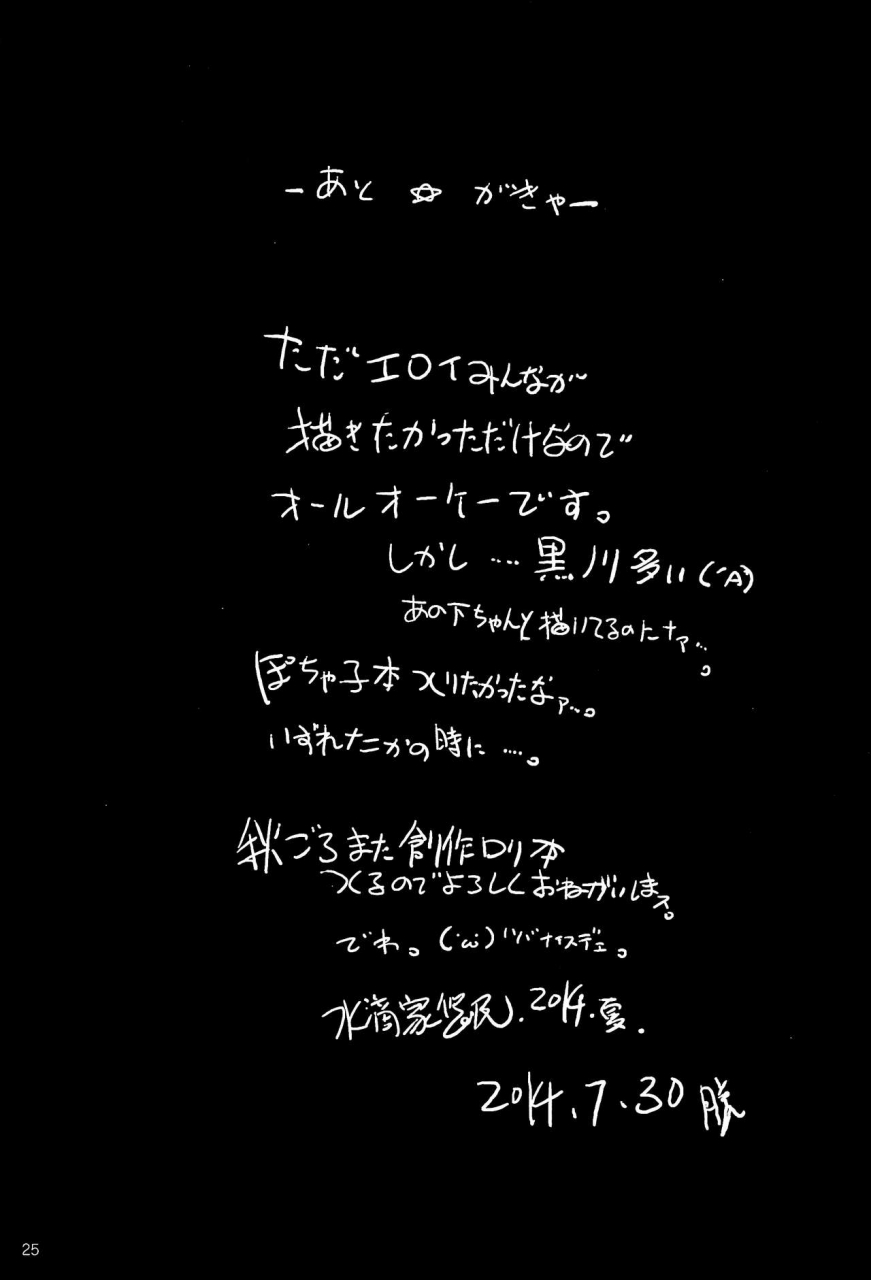 ーあと☆がきゃー
ただエロイみんなが
描きたかっただけなので
オールオーケーです。
しかし…黒ノリ多い(´A`)
あの下ちゃんと描いてるのにナァ…。
ぽちゃ子本つくりたかったなァ…。
いずれたこかの時に…。
秋ごろまた創作ロリ本
つくるのでよろしくおねがいしまス。
でわ。(・ω・)ツバナイスデェ。
水滴家悠民.2014.夏.
2014.7.30
25